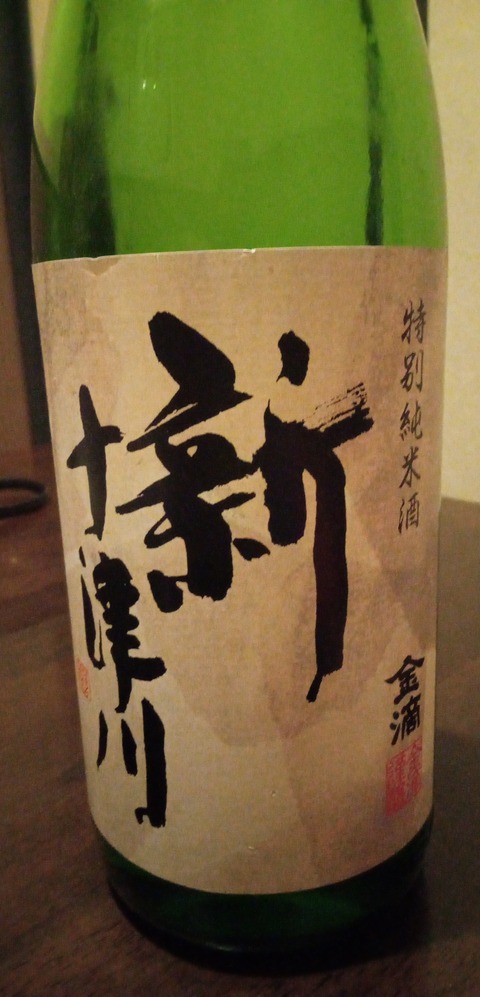 特別純米酒
金滴
新
十津川